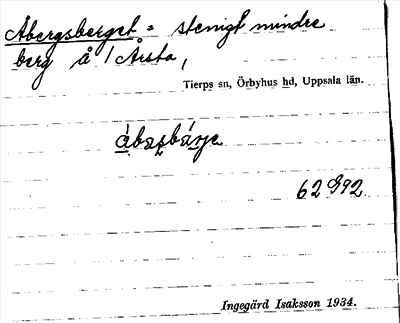 Åbergsberget = stenigt mindre
berg å / Årsta,
Tierps sn, Örbyhus hd, Uppsala län.
62 992
Ingegärd Isaksson 1934.